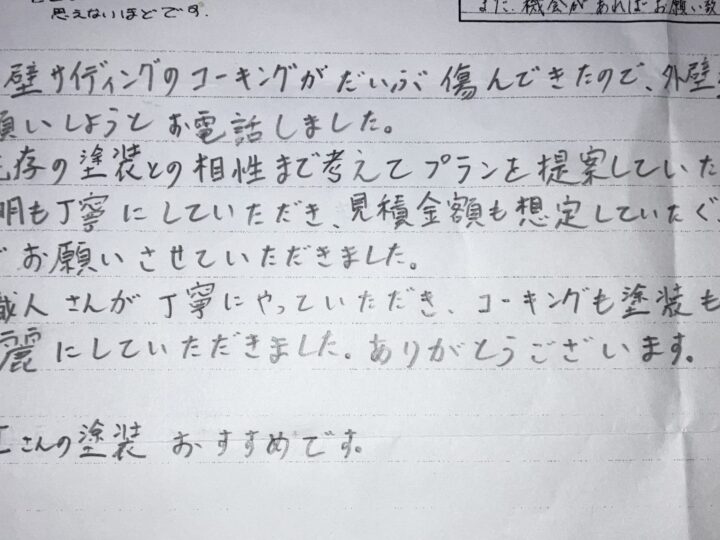 思えないほどです.
また、機会があればお願い致
壁サイディングのコーキングがだいぶ傷んできたので、外壁
願いしようとお電話しました。
存の塗装との相性まで考えてプランを提案していた
明も丁寧にしていただき、見積金額も想定していたぐ
お願いさせていただきました。
職人さんが丁寧にやっていただき、コーキングも塗装も
麗にしていただきました。ありがとうございます。
さんの塗装 おすすめです。